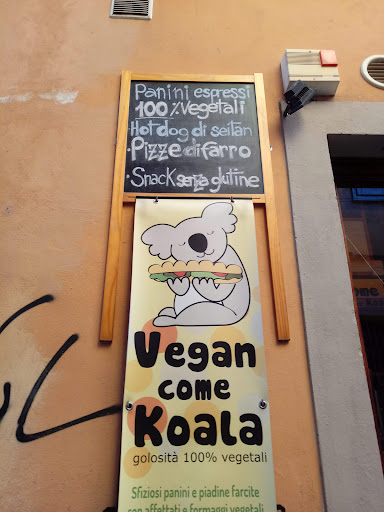 Panini espressi
100% Vegetali
Hot dog di seitan
• Pizze di farro
• Snack senza glutine
Vegan
come
Koala
golosità 100% vegetali
Sfiziosi panini e piadine farcite
con affettati e formaggi vegetali